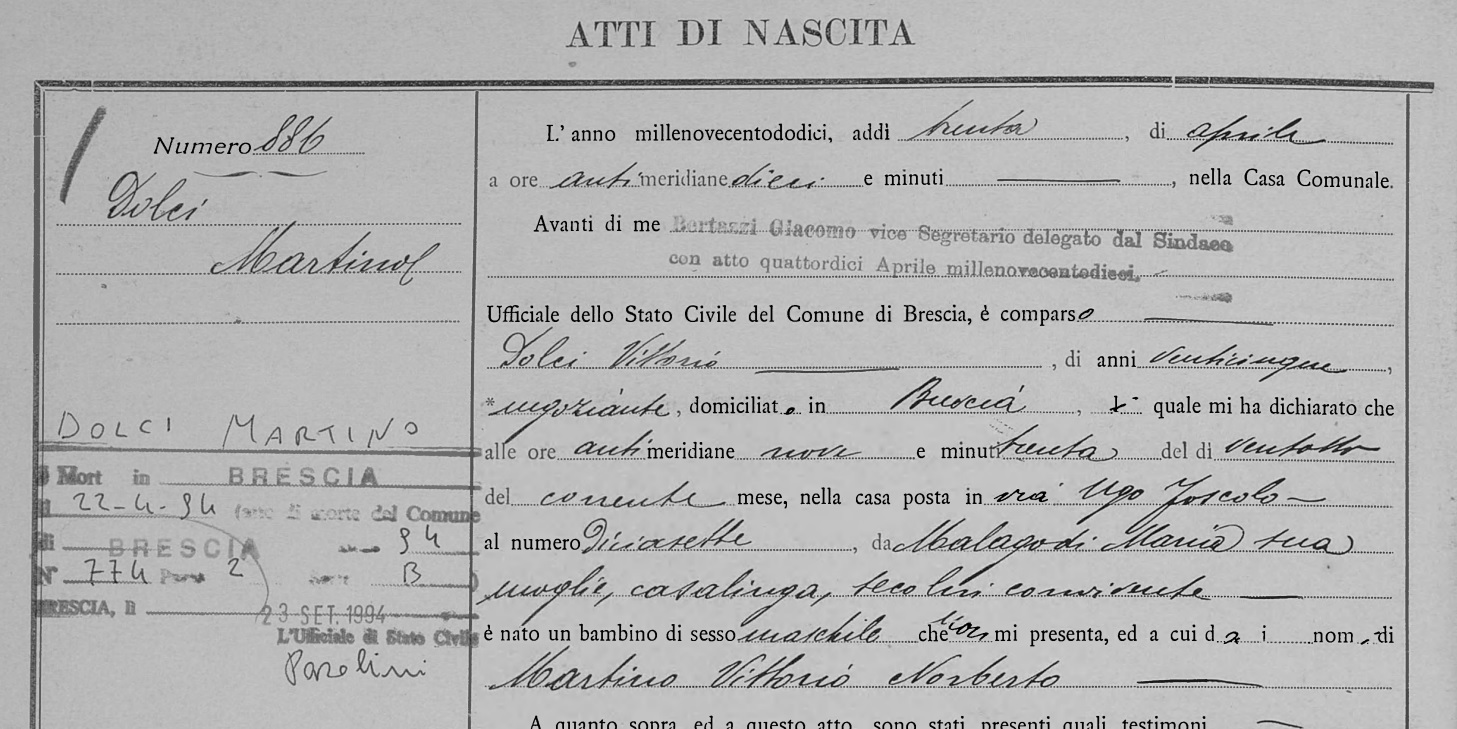 ATTI DI NASCITA
Numero 886
Dolci
Martino
DOLCI MARTINO
è Mort in BRESCIA
il 22-4-94 (atto di morte del Comune
di BRESCIA 94
N° 774 Parte 2 Serie B )
BRESCIA, lì 23 SET. 1994
L'Ufficiale di Stato Civile
L'anno millenovecentododici, addì trenta, di aprile
a ore antimeridiane dieci e minuti —, nella Casa Comunale.
Avanti di me Bertazzi Giacomo vice Segretario delegato dal Sindaco
con atto quattordici Aprile millenovecentodieci,
Ufficiale dello Stato Civile del Comune di Brescia, è comparso —
Dolci Vittorio —, di anni venticinque,
*negoziante, domiciliato in Brescia, il quale mi ha dichiarato che
alle ore antimeridiane nove e minuti trenta del dì ventotto
del corrente mese, nella casa posta in via Ugo Foscolo —
al numero diciasette, da Malagodi Maria sua
moglie, casalinga, seco lui convivente —
è nato un bambino di sesso maschile che non mi presenta, ed a cui dà i nomi di
Martino Vittorio Norberto —
A quanto sopra, ed a questo atto, sono stati presenti quali testimoni